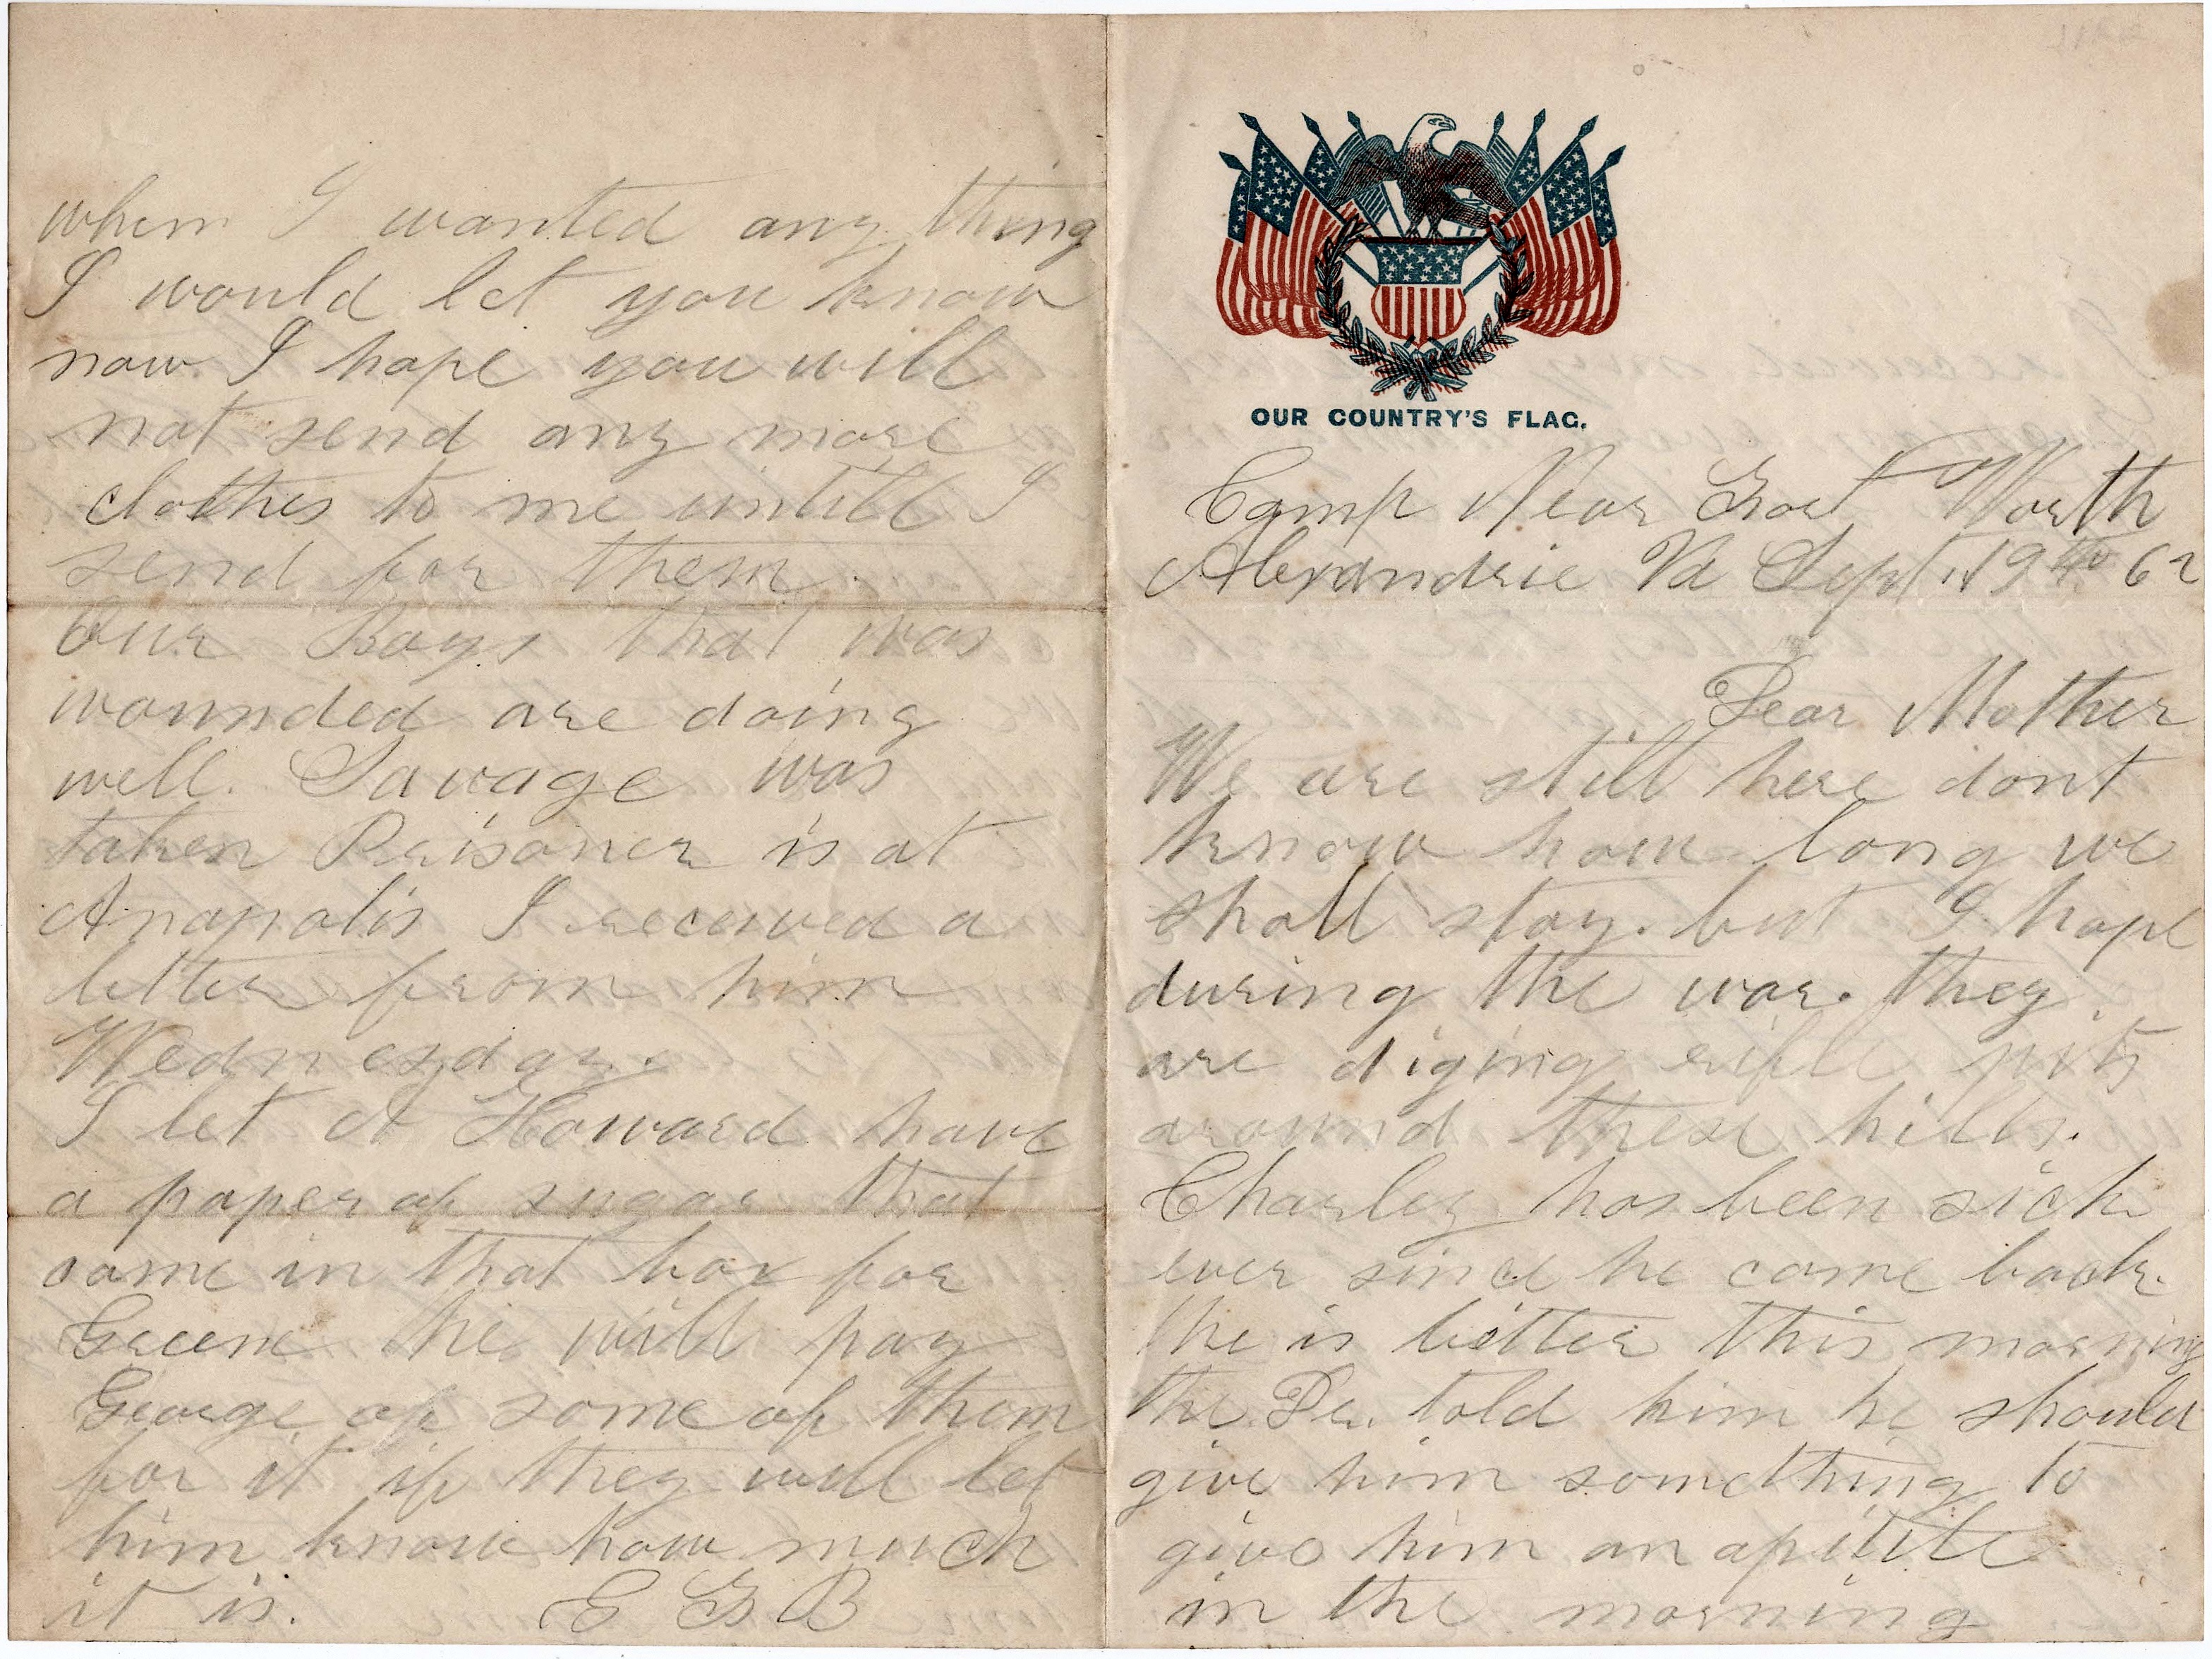 OUR COUNTRY'S FLAG.
Camp Near Fort Worth
Alexandrie Va Sept. 19th 62
Dear Mother
We are still here dont
know how long we
shall stay. but I hope
during the war. they
are diging rifle pits
around these hills.
Charley has been sick
ever since he come back.
he is better this morning
the Dr. told him he should
give him something to
give him an apitite
in the morning
when I wanted any thing
I would let you know
now I hope you will
not send any more
clothes to me untill I
send for them.
Our Boys that was
wounded are doing
well. Savage was
taken Prisoner is at
Anapolis I received a
letter from him
Wednesday.
I let A Howard have
a paper of sugar that
come in that box for
Greene he will pay
George of some of them
for it if they will let
him know how much
it is. E G B